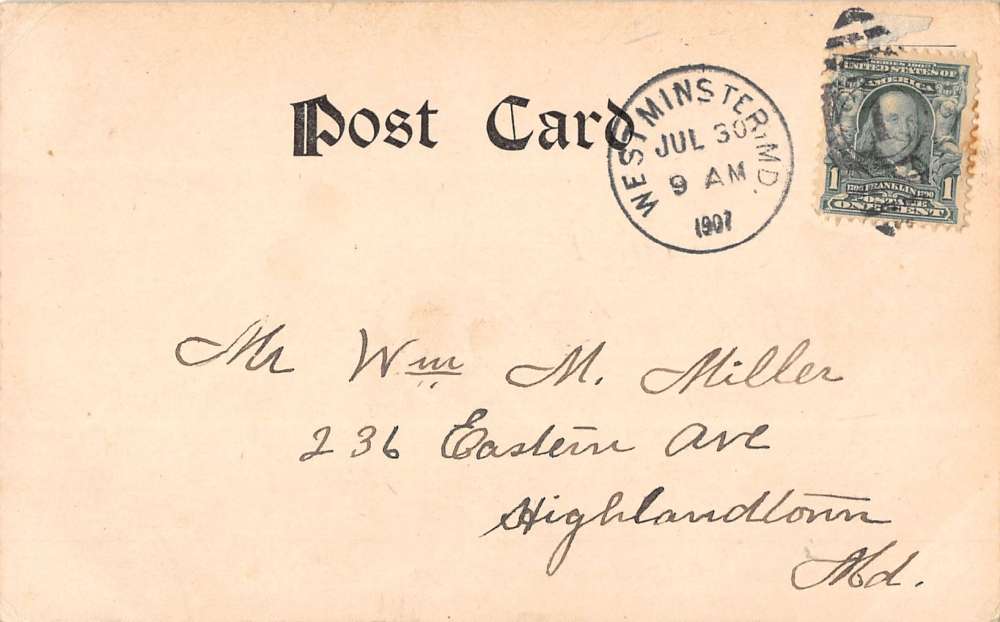 Post Card
WESTMINSTER, MD.
JUL 30
9 AM
1907
SERIES 1902
UNITED STATES OF
AMERICA
1 1
1706 FRANKLIN 1790
POSTAGE
ONE CENT
Mr Wm M. Miller
236 Eastern Ave
Highlandtown
Md.